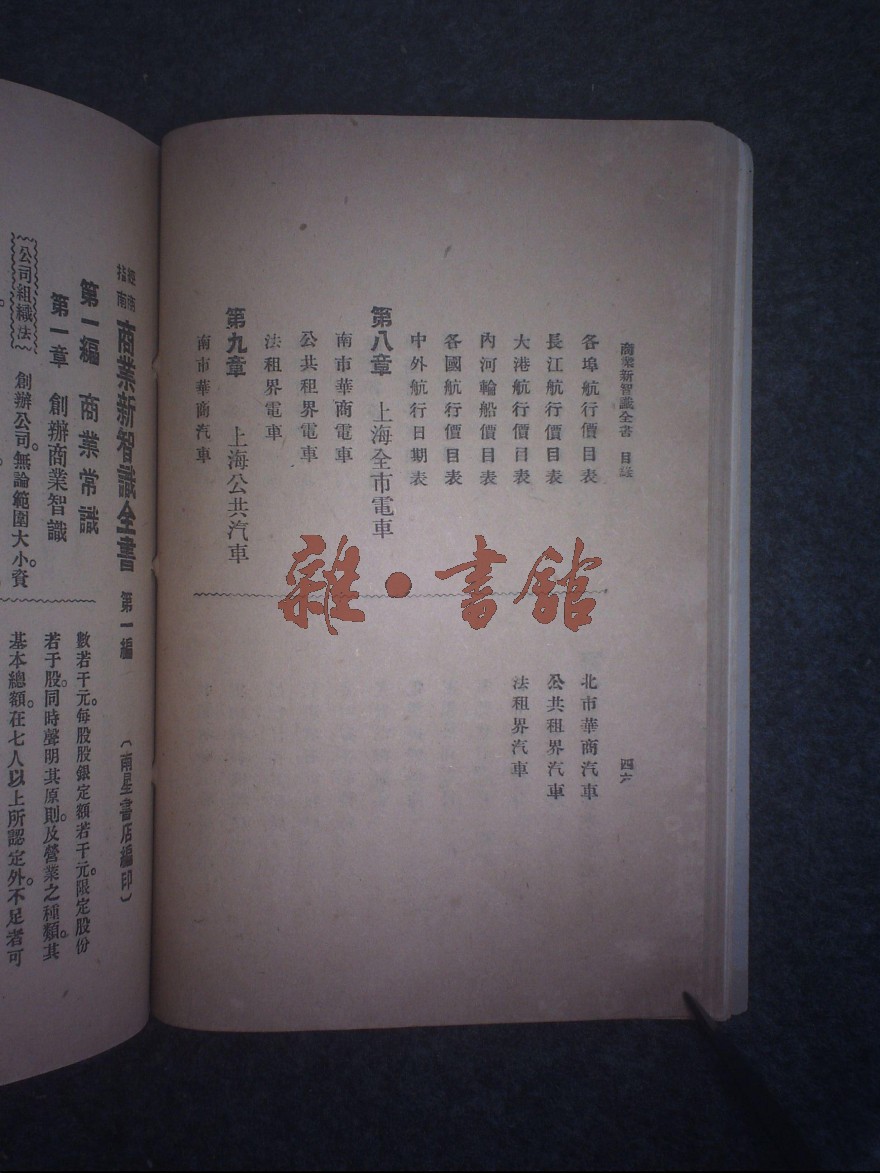 商業新智識全書 目錄 四六
各埠航行價目表
長江航行價目表
大港航行價目表
內河輪船價目表
各國航行價目表
中外航行日期表
第八章 上海全市電車
南市華商電車
公共租界電車
法租界電車
第九章 上海公共汽車
南市華商汽車
北市華商汽車
公共租界汽車
法租界汽車
雜·書館
經商指南 商業新智識全書 第一編 (南星書店編印)
第一編 商業常識
第一章 創辦商業智識
公司組織法 創辦公司。無論範圍大小。資
數若干元。每股股銀定額若干元。限定股份
若于股。同時聲明其原則。及營業之種類。其
基本總額。在七人以上所認定外。不足者可